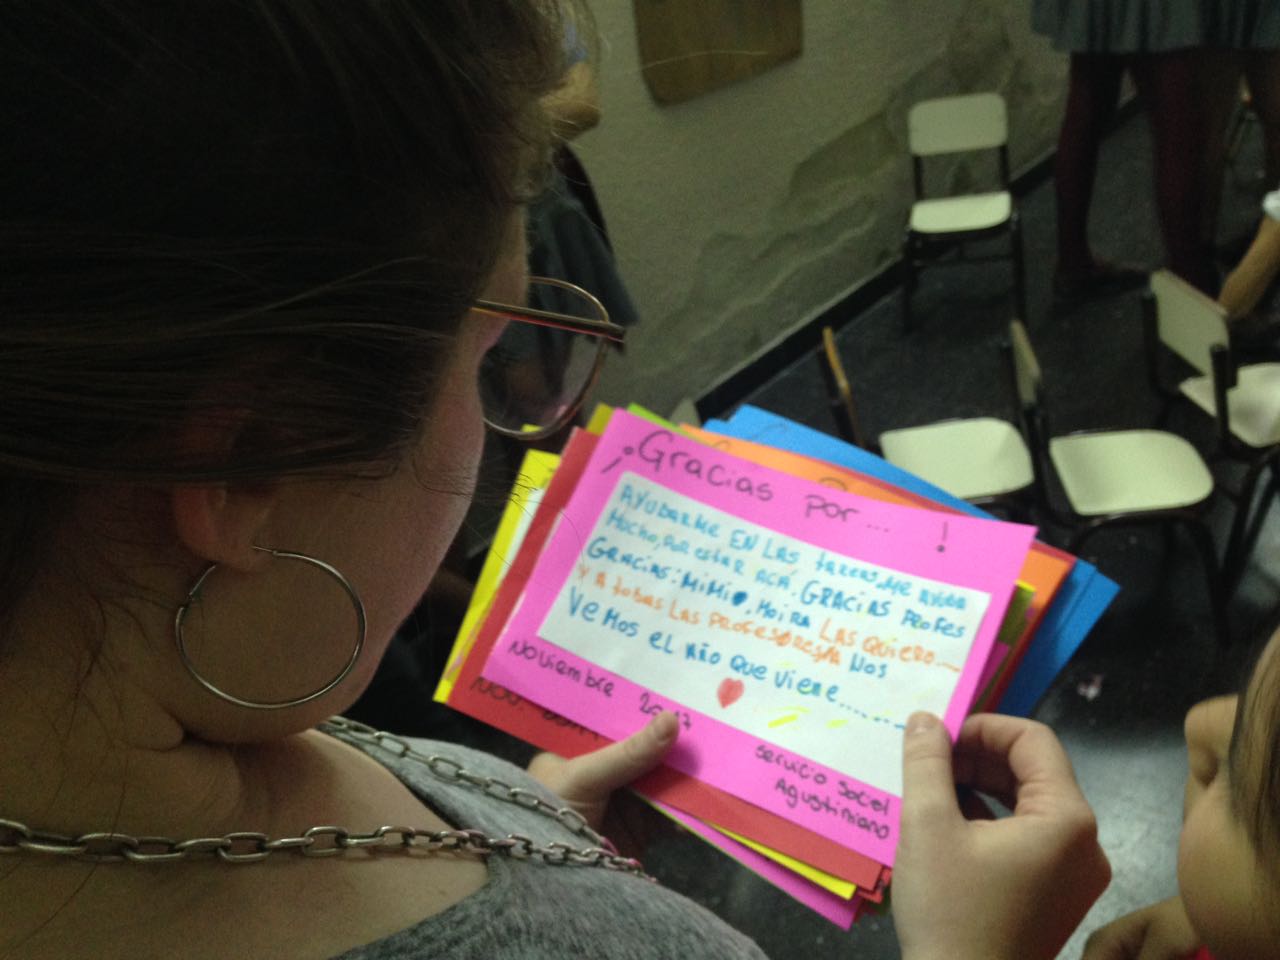 ¡Gracias por... !
AYUDARME EN LAS tareas, ME AYUDA
MUCHO, POR estar ACÁ. GRACIAS PROFES
GRACIAS: MiMi, MOIRA LAS QUIERO...
Y A tODAS LAS PROFESORESA NOS
VEMOS EL AÑO QUE Viene........
Noviembre 2017
Servicio Social
Agustiniano
NOV.